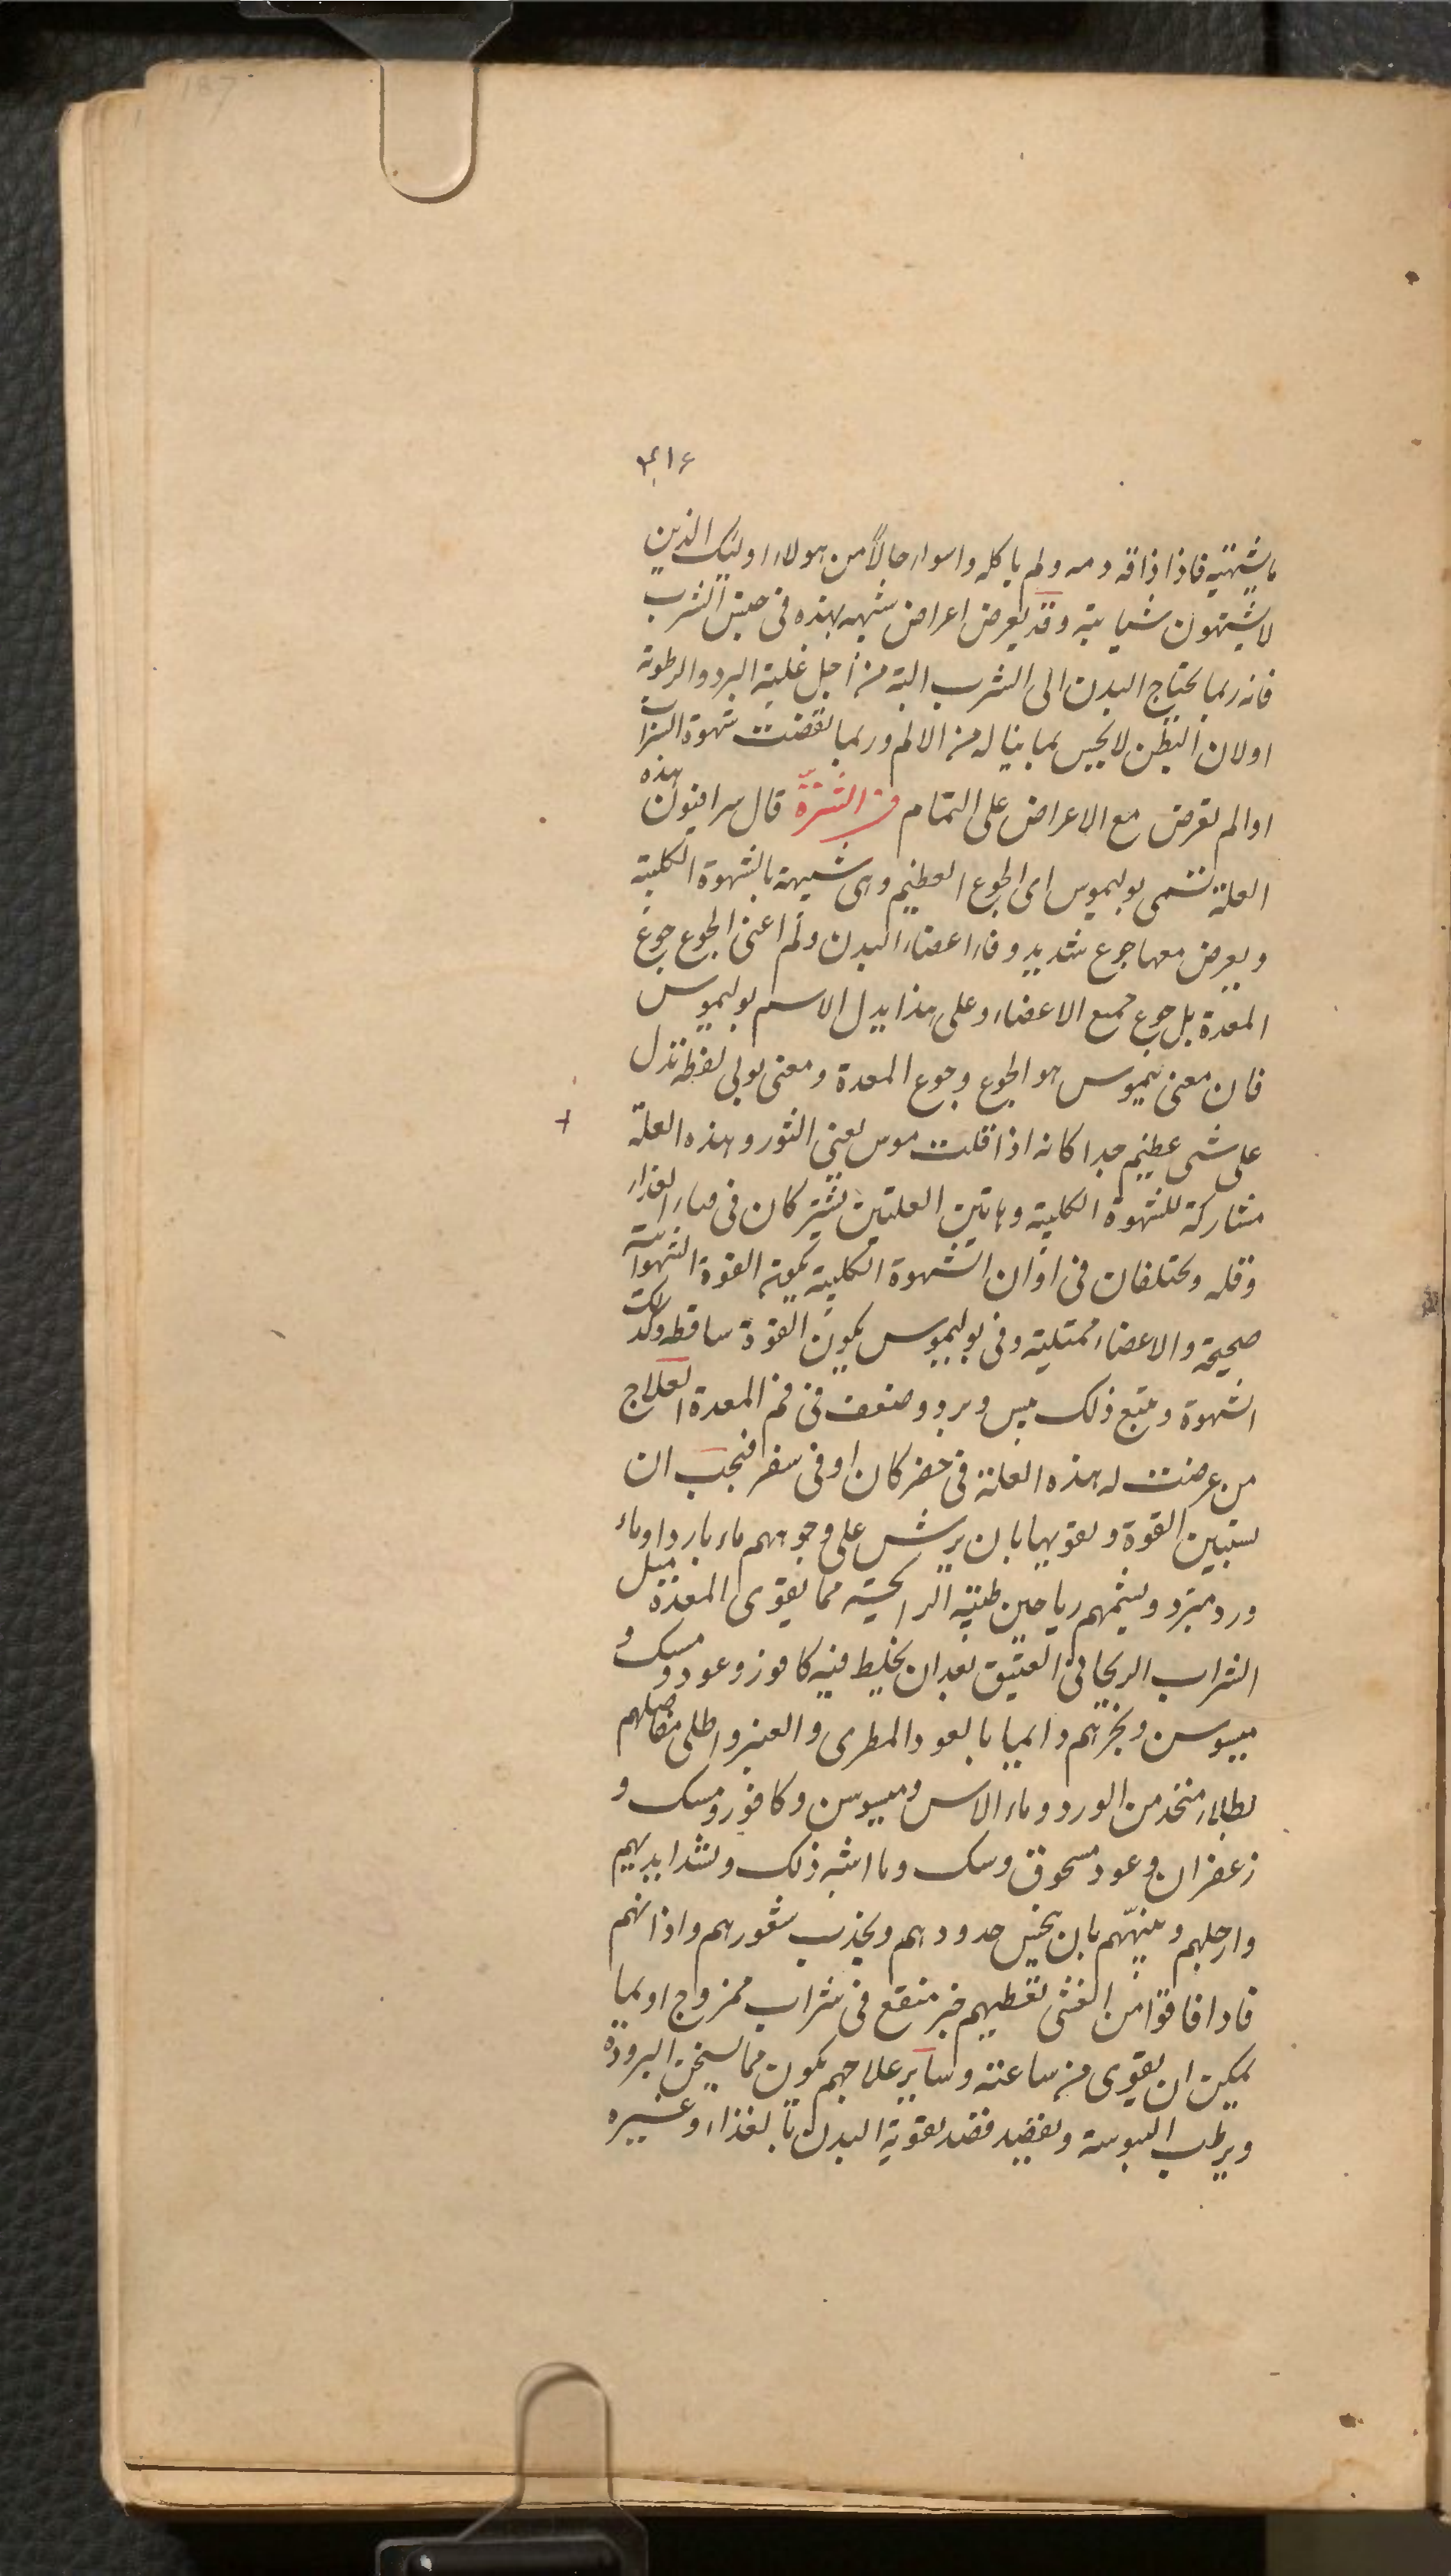 187
ما يشتهيه فاذا ذاقه ذمه ولم ياكله واسوا حالاً من هولاء اوليك الذين
لا يشتهون شيا بتة وقد يعرض اعراض شبهه بهذه فى جنس الشرب
فانه ربما يحتاج البدن الى الشرب البتة من أجل غلبة البرد والرطوبة
او لان البطن لا يحس بما يناله من الالم وربما نقصت شهوة الشراب
او لم تعرض مع الاعراض على التمام من الشرة قال سرافيون هذه
العلة تسمى بوليموس اى الجوع العظيم وهى شبيهة بالشهوة الكلبية
ويعرض معها جوع شديد وفاء اعضاء البدن ولم اعنى الجوع جوع
المعدة بل جوع جميع الاعضاء وعلى هذا يدل الاسم بوليموس
فان معنى ليموس هو الجوع وجوع المعدة ومعنى بولى لفظه تدل
على شى عظيم جدا كانه اذا قلت موس يعنى الثور وهذه العلة
مشاركة للشهوة الكلبية وهاتين العلتين تشتركان فى الغذاء
وقله ويختلفان فى اوان الشهوة الكلبية القوة الشهوانية
صحيحة والاعضاء ممتلية وفى بوليموس يكون القوة ساقطه وكذلك
الشهوة ويتبع ذلك يبس وبرد وضعف فى فم المعدة العلاج
من عرضت له هذه العلة فى حضر كان او فى سفر فيجب ان
يستبين القوة وتقويها بان يرش على وجوههم ماء بارد او ماء
ورد مبرد ويشمهم رياحين طيبة الرايحة مما يقوى المعدة مثل
الشراب الريحانى العتيق بعد ان يخلط فيه كافور وعود ومسك و
ميسوسن وبخرهم دايما بالعود المطرى والعنبر واطلى مفاصلهم
بطلاء متخذ من الورد وماء الاس وميسوسن وكافور ومسك و
زعفران وعود مسحوق وسك وما اشبه ذلك وتشد ايديهم
وارجلهم وينبّههم بان ينخس خدودهم ويجذب شعورهم واذانهم
فاذا افاقوا من الغشى تعطيهم خبز منقع فى شراب ممزوج او بما
يمكن ان يقوى من ساعته وساير علاجهم يكون مما يسخن البرودة
ويرطب اليبوسة ويقصد قصد تقوية البدن بالغذاء وغيره